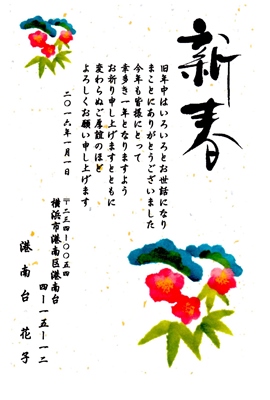 新春
旧年中はいろいろとお世話になり
まことにありがとうございました
今年も皆様にとって
幸多き一年となりますよう
お祈り申し上げますとともに
変わらぬご厚誼のほど
よろしくお願い申し上げます
二〇一六年一月一日
〒二三四-〇〇五四
横浜市港南区港南台
四-一五-一二
港南台 花子